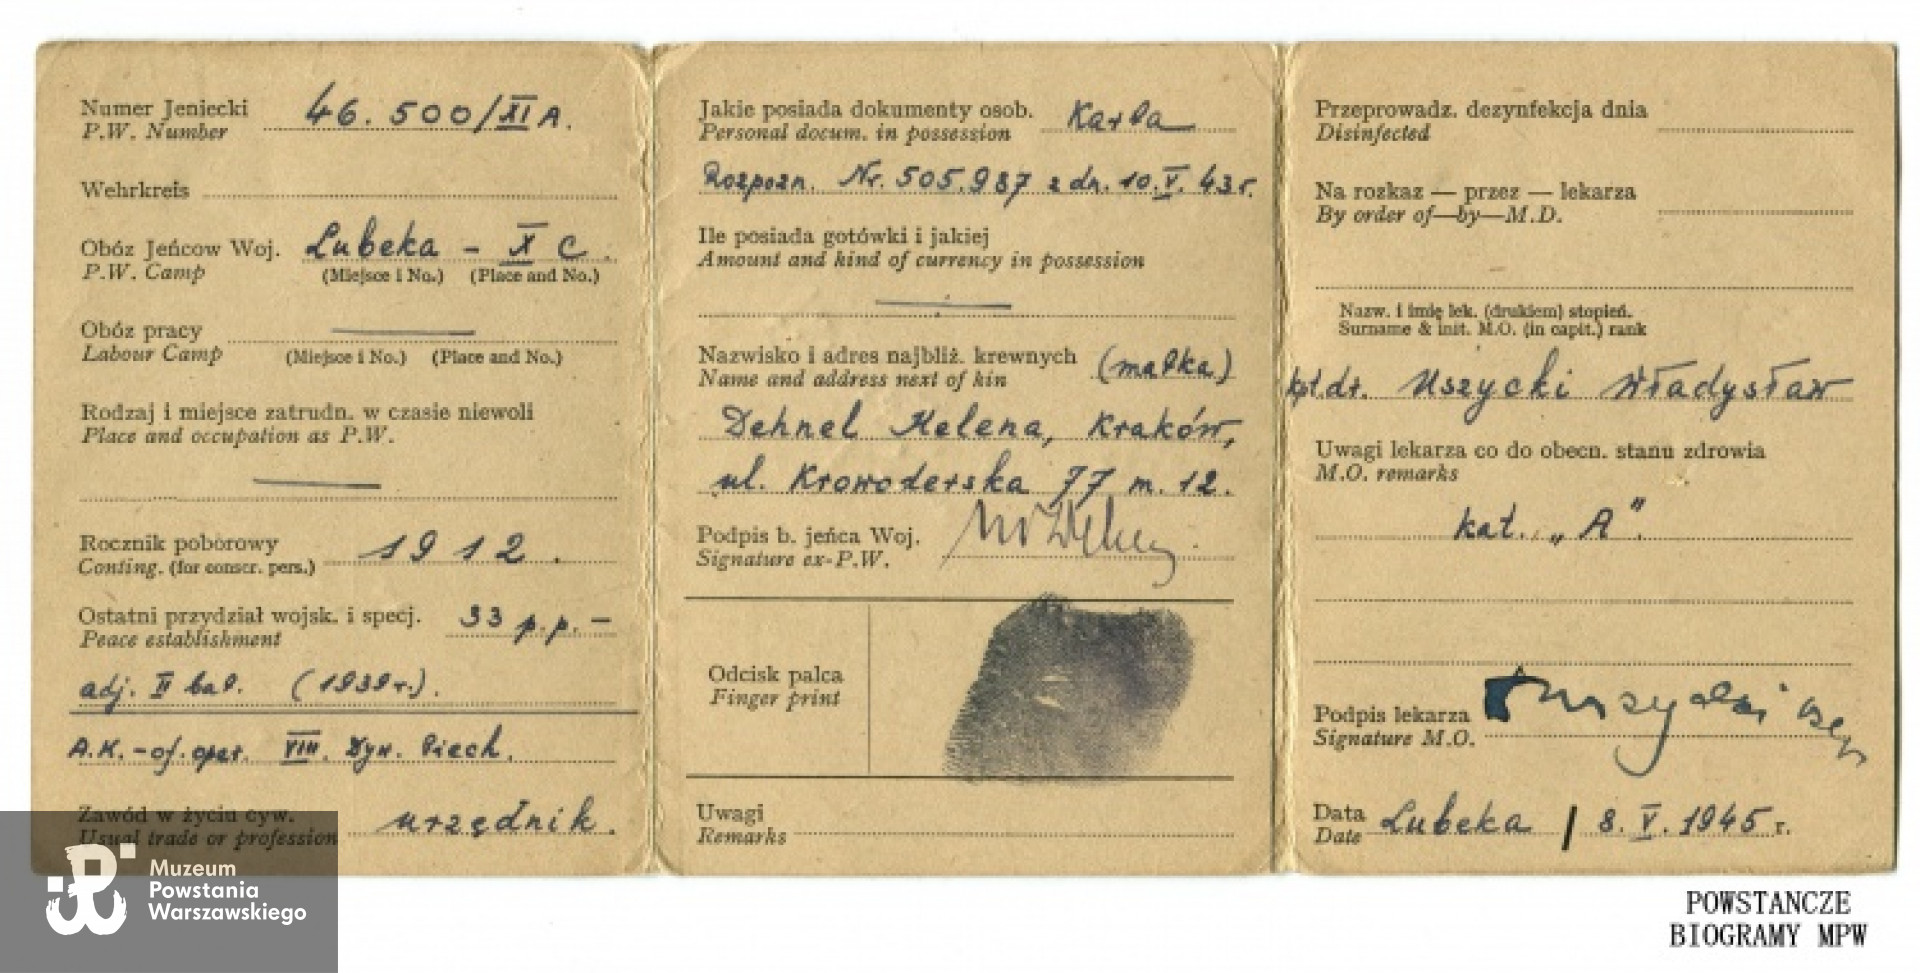 Numer Jeniecki 46.500/XI A.
P.W. Number
Wehrkreis
Obóz Jeńcow Woj. Lubeka - X C.
P.W. Camp (Miejsce i No.) (Place and No.)
Obóz pracy
Labour Camp (Miejsce i No.) (Place and No.)
Rodzaj i miejsce zatrudn. w czasie niewoli
Place and occupation as P.W.
Rocznik poborowy 1912.
Conting. (for conscr. pers.)
Ostatni przydział wojsk. i specj. 33 p.p. -
Peace establishment
adj. II bat. (1939 r.).
A.K. - of. oper. VIII. Dyw. Piech.
Zawód w życiu cyw. urzędnik.
Usual trade or profession
Muzeum
Powstania
Warszawskiego
Jakie posiada dokumenty osob. Karta
Personal docum. in possession
Rozpozn. Nr. 505.987 z dn. 10.V.43 r.
Ile posiada gotówki i jakiej
Amount and kind of currency in possession
Nazwisko i adres najbliż. krewnych (matka)
Name and address next of kin
Dehnel Helena, Kraków,
ul. Krowoderska 77 m. 12.
Podpis b. jeńca Woj.
Signature ex-P.W.
Odcisk palca
Finger print
Uwagi
Remarks
Przeprowadz. dezynfekcja dnia
Disinfected
Na rozkaz — przez — lekarza
By order of—by—M.D.
Nazw. i imię lek. (drukiem) stopień.
Surname & init. M.O. (in capit.) rank
kpt. dr. Uszycki Władysław
Uwagi lekarza co do obecn. stanu zdrowia
M.O. remarks
kat. „A".
Podpis lekarza
Signature M.O.
Data Lubeka / 8.V.1945 r.
Date
POWSTAŃCZE
BIOGRAMY MPW